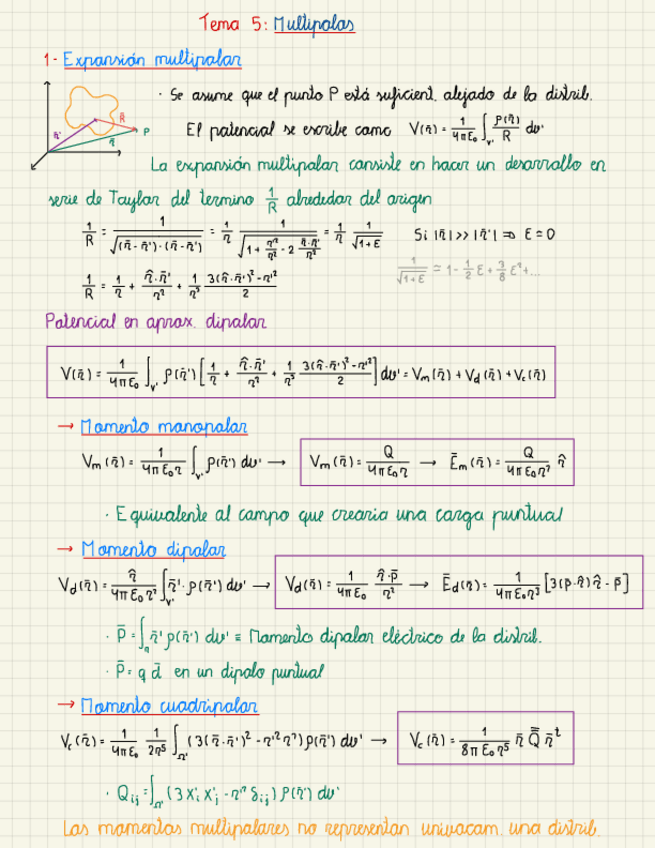 Tema 5: Multipolos
1- Expansión multipolar
R
r̄'
r̄
P
· Se asume que el punto P está suficient. alejado de la distrib.
El potencial se escribe como V(r̄) = 1/(4πε₀) ∫_v' ρ(r̄')/R dv'
La expansión multipolar consiste en hacer un desarrollo en
serie de Taylor del termino 1/R alrededor del origen
1/R = 1/√((r̄ - r̄')·(r̄ - r̄')) = 1/r 1/√(1 + r'²/r² - 2 r̄·r̄'/r²) = 1/r 1/√(1+ε) Si |r̄| >> |r̄'| ⇒ ε = 0
1/√(1+ε) = 1 - 1/2 ε + 3/8 ε² + ...
1/R = 1/r + r̂·r̄'/r² + 1/r³ (3(r̂·r̄')² - r'²)/2
Potencial en aprox. dipolar
V(r̄) = 1/(4πε₀) ∫_v' ρ(r̄') [1/r + r̂·r̄'/r² + 1/r³ (3(r̂·r̄')² - r'²)/2] dv' = Vm(r̄) + Vd(r̄) + Vc(r̄)
→ Momento monopolar
Vm(r̄) = 1/(4πε₀r) ∫_v' ρ(r̄') dv' → Vm(r̄) = Q/(4πε₀r) → Ēm(r̄) = Q/(4πε₀r²) r̂
· Equivalente al campo que crearia una carga puntual
→ Momento dipolar
Vd(r̄) = r̂/(4πε₀r²) ∫_v' r̄'·ρ(r̄') dv' → Vd(r̄) = 1/(4πε₀) r̂·p̄/r² → Ēd(r̄) = 1/(4πε₀r³) [3(p̄·r̂)r̂ - p̄]
· p̄ = ∫ r̄' ρ(r̄') dv' ≡ Momento dipolar eléctrico de la distrib.
· p̄ = q d̄ en un dipolo puntual
→ Momento cuadripolar
Vc(r̄) = 1/(4πε₀) 1/(2r⁵) ∫ (3(r̄·r̄')² - r'²r²) ρ(r̄') dv' → Vc(r̄) = 1/(8πε₀r⁵) r̄ Q̿ r̄ᵗ
· Qij = ∫ (3x'i x'j - r'² δij) ρ(r̄') dv'
Los momentos multipolares no representan univocam. una distrib.